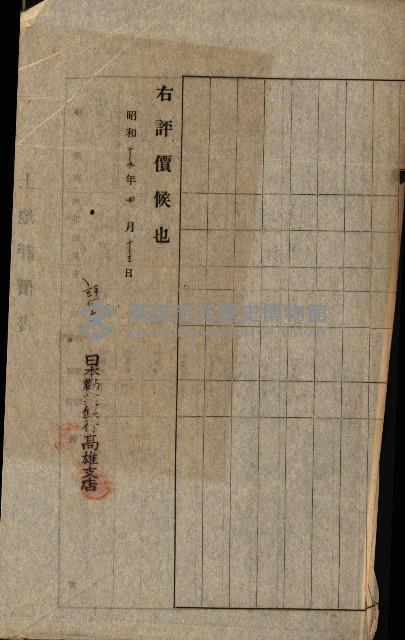 右評價候也
昭和十六年四月十三日
日本勸業銀行高雄支店
高雄市立歷史博物館
土地評價書